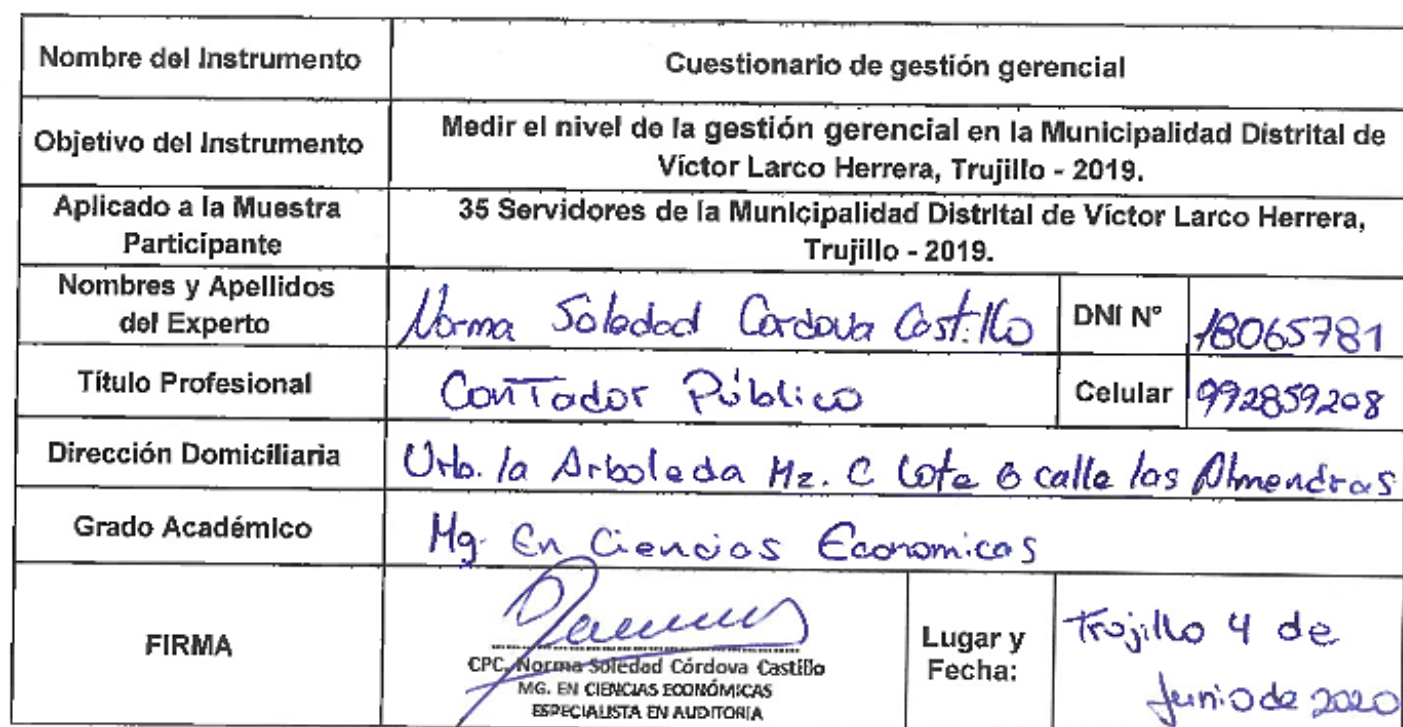 Nombre del Instrumento Cuestionario de gestión gerencial
Objetivo del Instrumento Medir el nivel de la gestión gerencial en la Municipalidad Distrital de
Víctor Larco Herrera, Trujillo - 2019.
Aplicado a la Muestra
Participante
35 Servidores de la Municipalidad Distrital de Víctor Larco Herrera,
Trujillo - 2019.
Nombres y Apellidos
del Experto
Norma Soledad Cordova Castillo
DNI N° 18065781
Título Profesional Contador Público
Celular 992859208
Dirección Domiciliaria Urb. la Arboleda Mz. C Lote 6 calle las Almendras
Grado Académico Mg. En Ciencias Economicas
FIRMA
CPC. Norma Soledad Córdova Castillo
MG. EN CIENCIAS ECONÓMICAS
ESPECIALISTA EN AUDITORIA
Lugar y
Fecha:
Trujillo 4 de
Junio de 2020